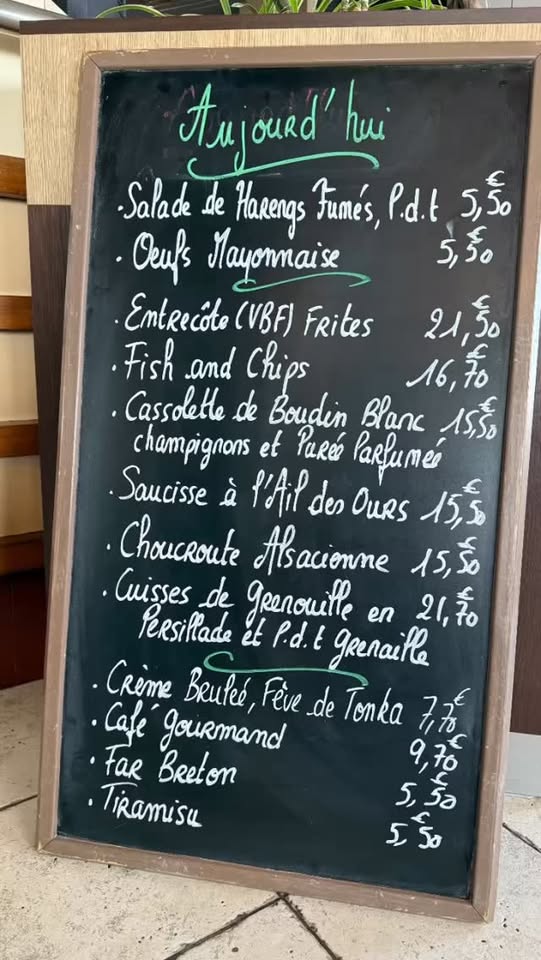 Aujourd'hui
• Salade de Harengs Fumés, P.d.t 5,50€
• Oeufs Mayonnaise 5,50€
• Entrecôte (VBF) Frites 21,50€
• Fish and Chips 16,70€
• Cassolette de Boudin Blanc 15,50€
champignons et Pureé Parfumeé
• Saucisse à l'Ail des Ours 15,50€
• Choucroute Alsacienne 15,50€
• Cuisses de grenouille en 21,70€
Persillade et P.d.t grenaille
• Crème Bruleé, Fève de Tonka 7,70€
• Café gourmand 9,70€
• Far Breton 5,50€
• Tiramisu 5,50€